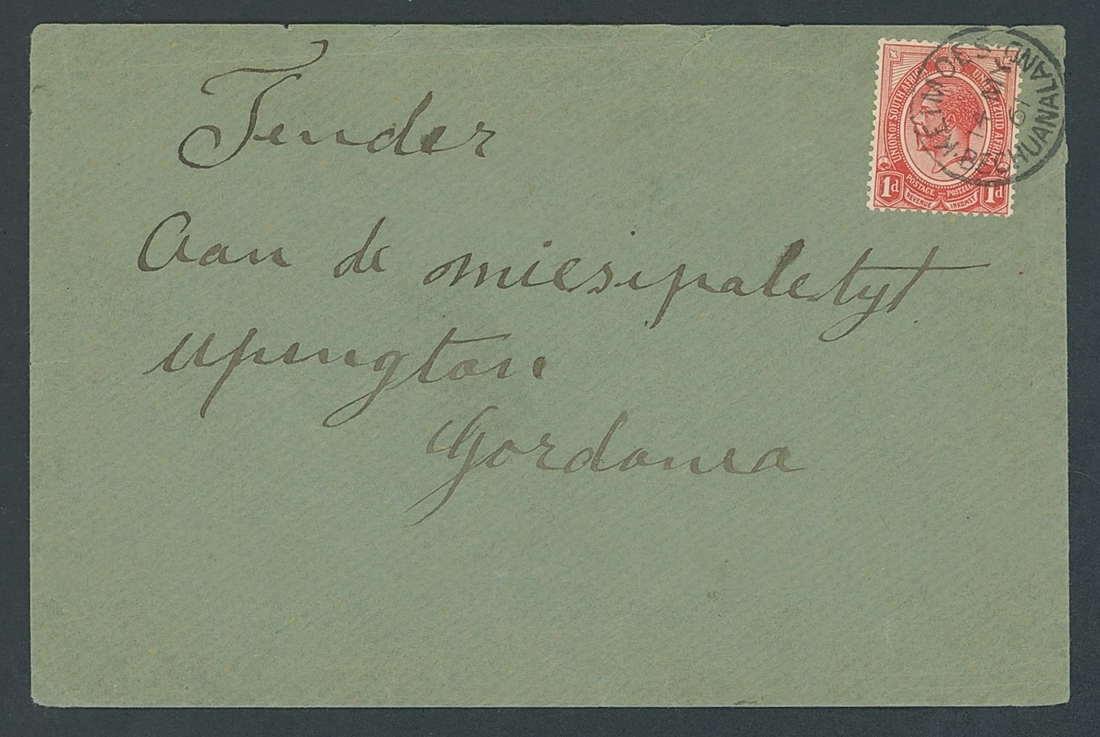 Tender
Aan de miesipaletyt
Upington
Gordonia
UNION OF SOUTH AFRICA
UNIE VAN ZUID AFRIKA
POSTAGE POSTZEGEL
REVENUE INKOMST
1d 1d
KEIMOES
BECHUANALAND
14 MY
19